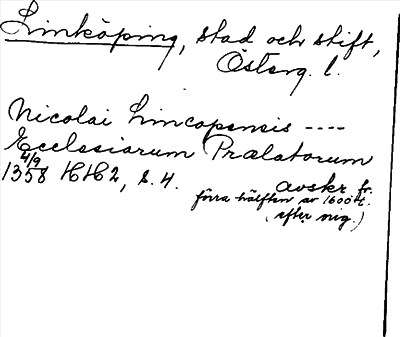 Linköping, stad och stift,
Österg. l.
Nicolai Lincopensis ----
Ecclesiarum Prælatorum
4/9
1358 HH2, s. 4.
avskr fr.
förra hälften av 1600 t.
(efter mig.)